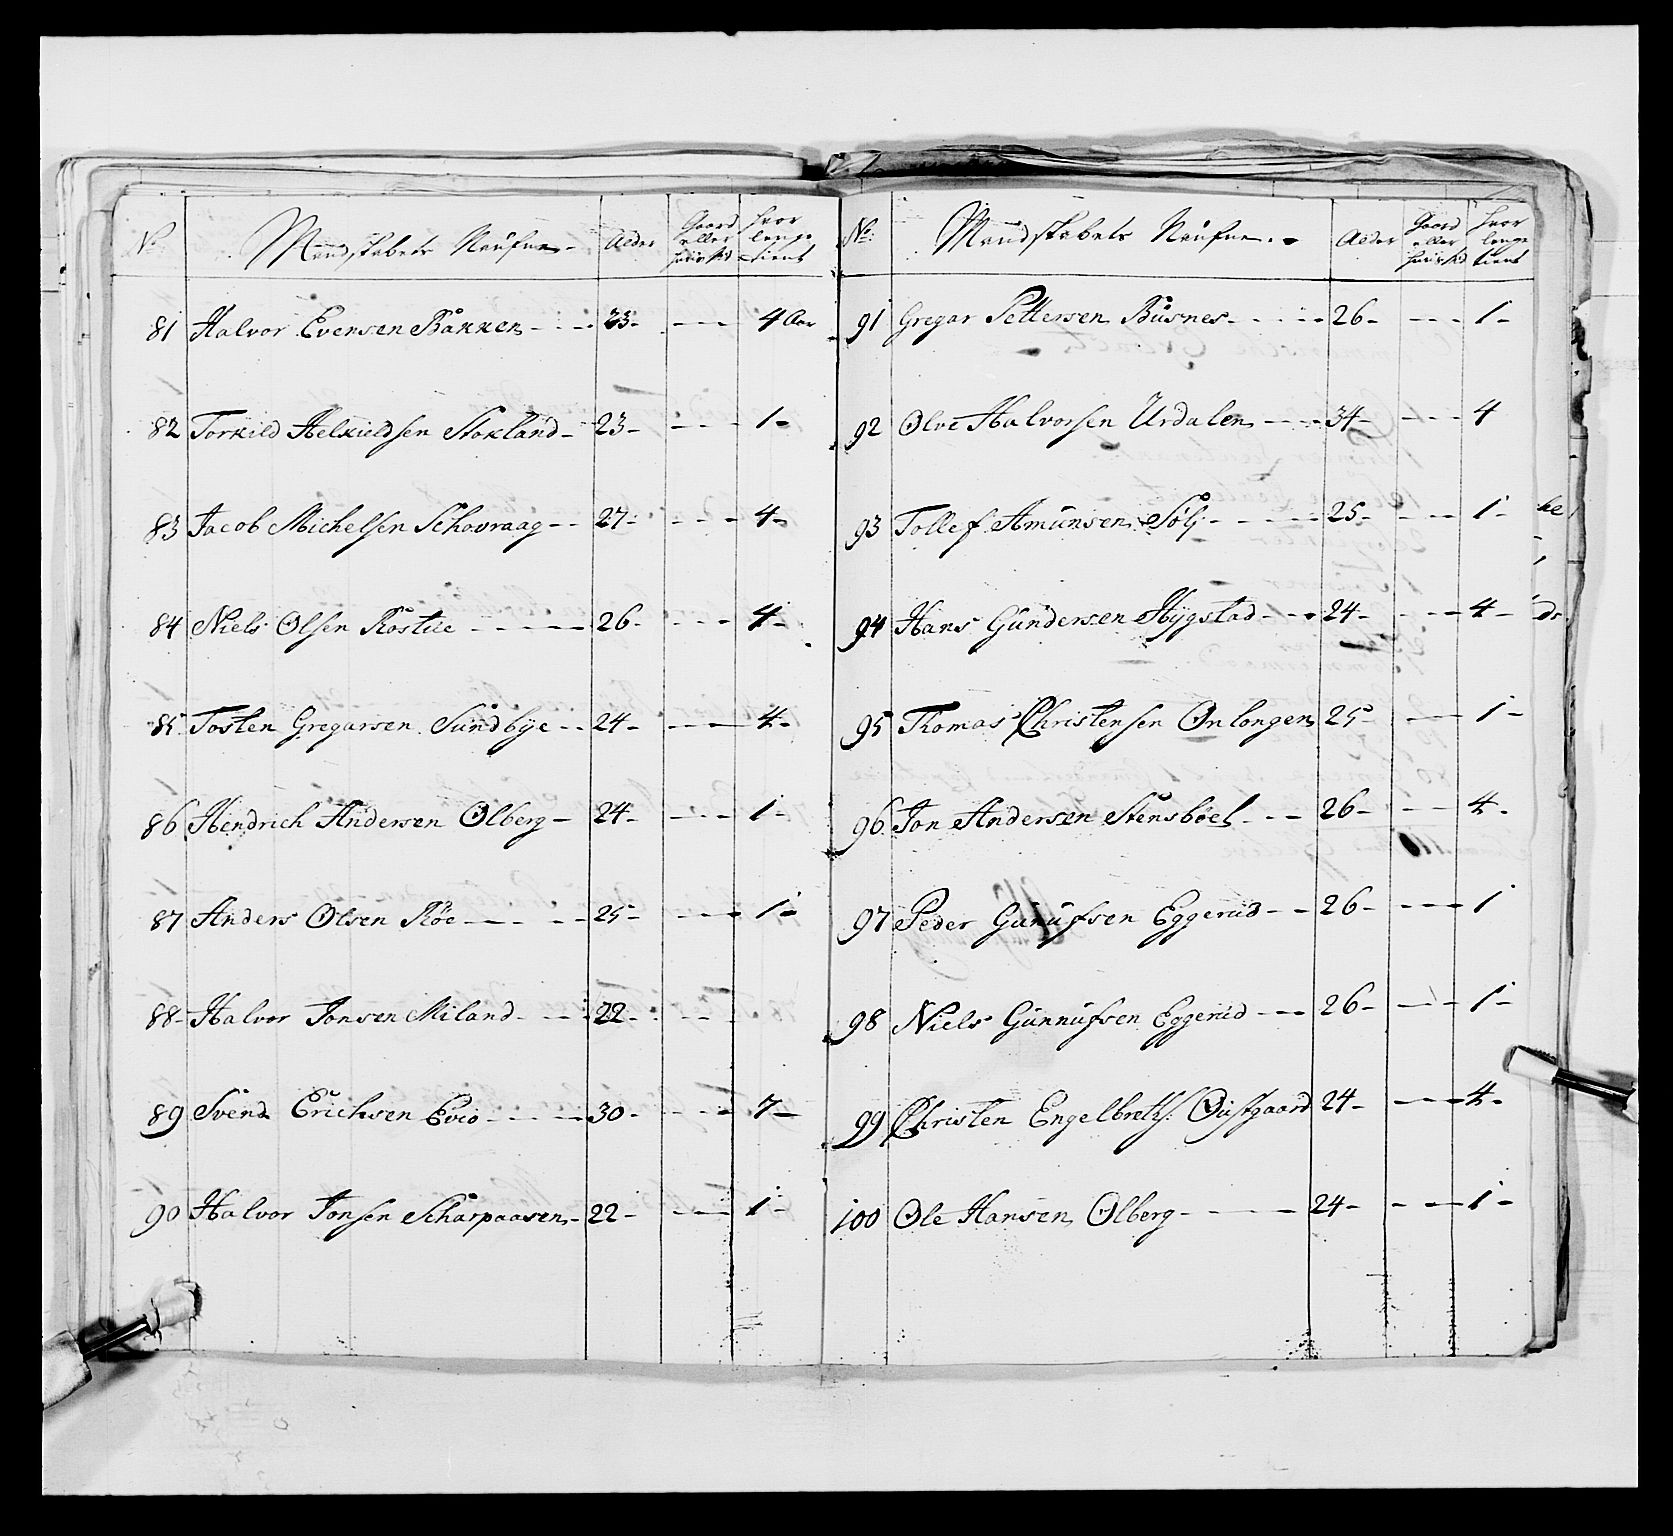 No Mandskabets Naufne Alder Gaard eller huusmd hvor lenge tient
81 Halvor Evensen Bakken - - - 33 - - - - 4 Aar
82 Torkild Helkieldsen Stokland - 23 - - - - 1 -
83 Jacob Michelsen Schovraag - - 27 - - - - 4 -
84 Niels Olsen Rostue - - - - - 26 - - - - 4 -
85 Tosten Gregarsen Sundbye - - 24 - - - - 4 -
86 Hendrich Andersen Olberg - 24 - - - - 1 -
87 Anders Olsen Röe - - - - - 25 - - - - 1 -
88 - Halvor Jonsen Miland - - - 22 - - - -
89 Svend Erichsen Evio - - - - - 30 - - - - 7 -
90 Halvor Jonsen Scharpaasen - 22 - - - - 1 -
No Mandskabets Naufne Alder Gaard eller huusmd hvor lenge tient
91 Gregar Pettersen Busnes - - - - 26 - - - - 1 -
92 Olve Halvorsen Urdalen - - - - 34 - - - - 4
93 Tollef Amunsen Sølj - - - - - 25 - - - - 1 -
94 Hans Gundersen Hygstad - - - 24 - - - - 4 -
95 Thomas Christensen Onlongen 25 - - - 1 -
96 Jon Andersen Stensböel - - - 26 - - - 4 -
97 Peder Gunufsen Eggerud - - 26 - - - - 1
98 Niels Gunnufsen Eggerud - - - 26 - - - 1 -
99 Christen Engelbrets. Oustgaard 24 - - - - 4 -
100 Ole Hansen Olberg - - - - - 24 - - - - 1 -